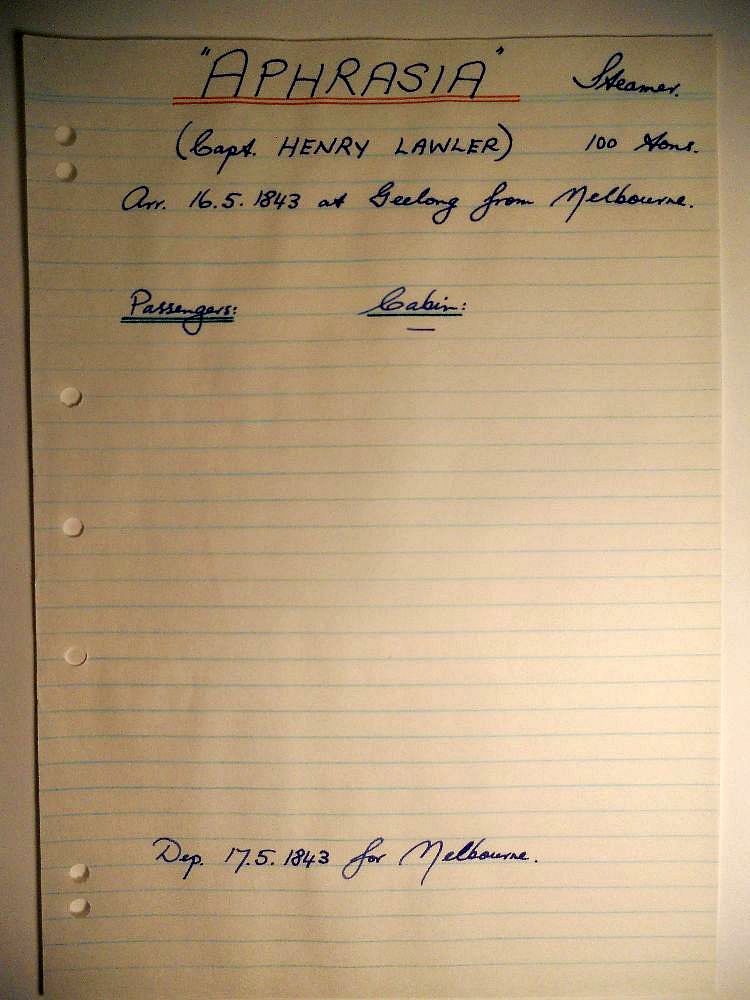 "APHRASIA" Steamer.
(Capt. HENRY LAWLER) 100 tons.
Arr. 16.5.1843 at Geelong from Melbourne.
Passengers: Cabin:
—
Dep. 17.5.1843 for Melbourne.